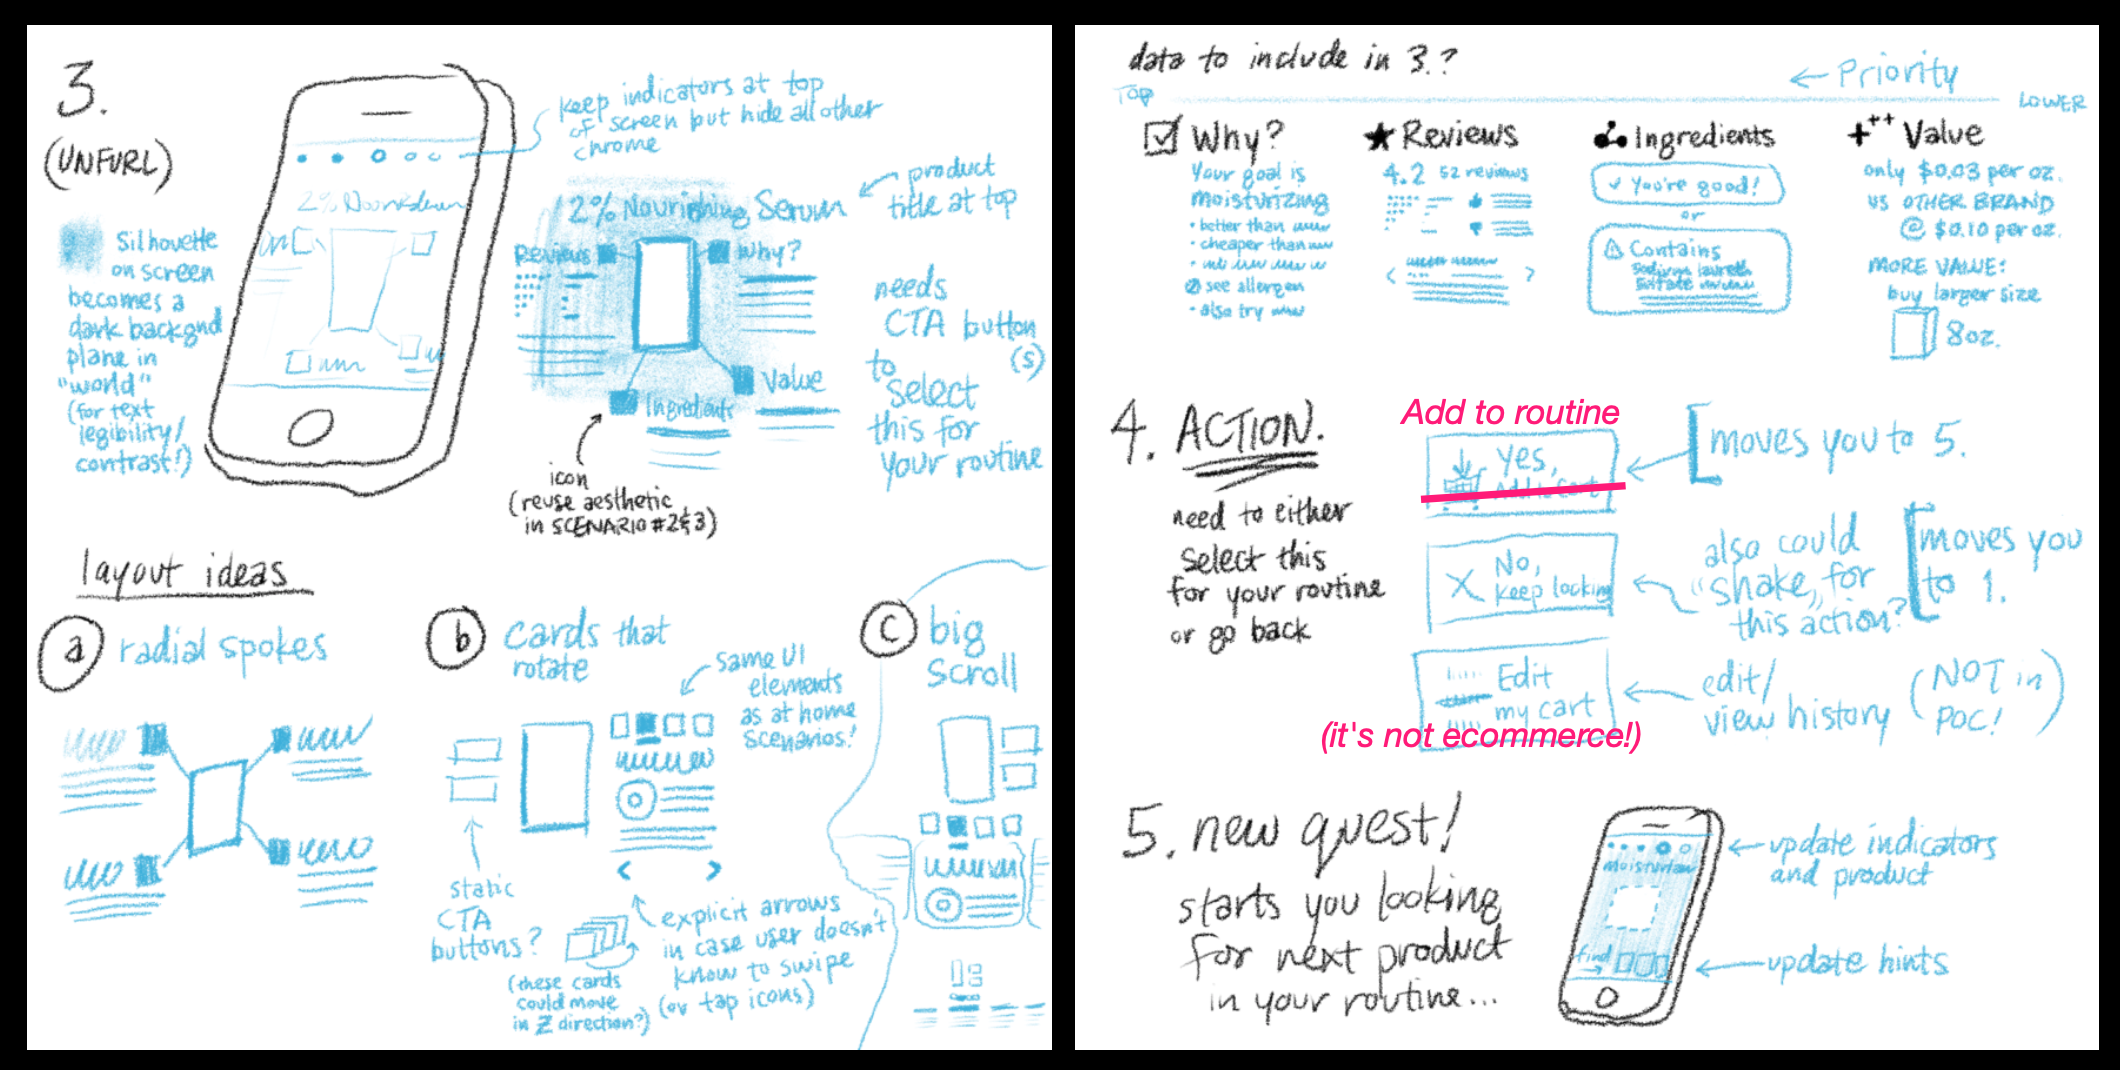 3.
(UNFURL)
keep indicators at top
of screen but hide all other
chrome
2%
Silhouette
on screen
becomes a
dark backgnd
plane in
"world"
(for text
legibility/
contrast!)
product
title at top
2% Nourishing Serum
Reviews
Why?
Ingredients
Value
needs
CTA button
(s)
to
select
this for
your routine
icon
(reuse aesthetic
in SCENARIO #2&3)
layout ideas
a
radial spokes
b
cards that
rotate
same UI
elements
as at home
scenarios!
static
CTA
buttons?
(these cards
could move
in Z direction?)
explicit arrows
in case user doesn't
know to swipe
(or tap icons)
c
big
scroll
data to include in 3.?
← Priority
TOP
LOWER
Why?
Your goal is
moisturizing
• better than
• cheaper than
see allergen
• also try
★ Reviews
4.2 52 reviews
< >
Ingredients
✓ You're good!
or
⚠ Contains
Sodium laureth
Sulfate
+++ Value
only $0.03 per oz.
vs OTHER BRAND
@ $0.10 per oz.
MORE VALUE:
buy larger size
8oz.
4. ACTION.
need to either
select this
for your routine
or go back
Add to routine
Yes,
Add to cart
moves you to 5.
X No,
keep looking
also could
"shake" for
this action?
moves you
to 1.
Edit
my cart
(it's not ecommerce!)
edit/
view history
(NOT in
POC!)
5. new quest!
starts you looking
for next product
in your routine...
find
update indicators
and product
update hints